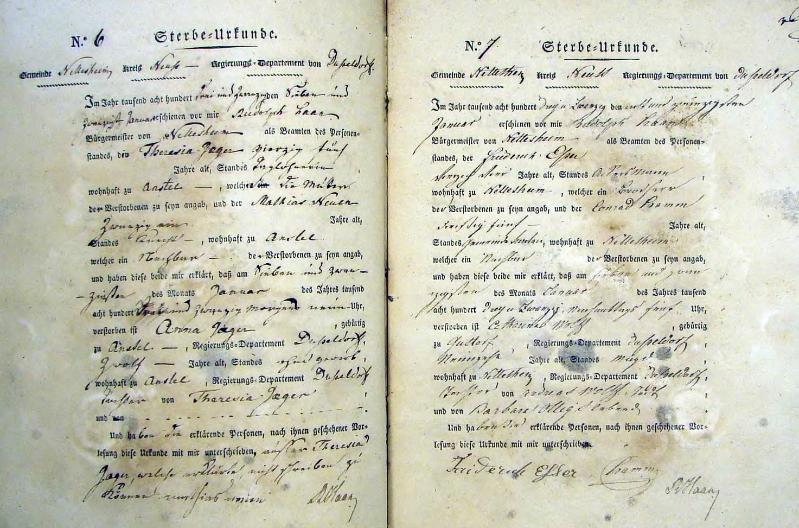 N.º 6 Sterbe=Urkunde.
Gemeinde Nettesheim Kreis Neuss Regierungs-Departement von Düsseldorf
Im Jahr tausend acht hundert drei und zwanzig den Sieben und
zwanzigst Januar erschienen vor mir Rudolph Haan
Bürgermeister von Nettesheim als Beamten des Personen-
standes, der Theresia Jäger vierzig fünf
Jahre alt, Standes Taglöhnerin
wohnhaft zu Anstel, welche die Mutter
der Verstorbenen zu seyn angab, und der Mathias Neuen
Zwanzig ein Jahre alt,
Standes Knecht, wohnhaft zu Anstel
welcher ein Nachbar der Verstorbenen zu seyn angab,
und haben diese beide mir erklärt, daß am Sieben und zwan-
zigsten des Monats Januar des Jahrs tausend
acht hundert drei und zwanzig morgens neun Uhr,
verstorben ist Anna Jäger, gebürtig
zu Anstel, Regierungs-Departement Düsseldorf,
Zwölf Jahre alt, Standes ohne Gewerb,
wohnhaft zu Anstel, Regierungs-Departement Düsseldorf
Tochter von Theresia Jaeger
und von
Und haben die erklärende Personen, nach ihnen geschehener Vor-
lesung diese Urkunde mit mir unterschrieben, ausser Theresia
Jäger, welche erklärte, nicht schreiben zu
können mathias neuen RHaan
N.º 7 Sterbe=Urkunde.
Gemeinde Nettesheim Kreis Neuss Regierungs-Departement von Düsseldorf
Im Jahr tausend acht hundert drey u Zwanzig den acht und zwanzigsten
Januar erschienen vor mir Rudolph Haan
Bürgermeister von Nettesheim als Beamten des Personen-
standes, der Friderich Esser
vierzig Jahre alt, Standes Ackersmann
wohnhaft zu Nettesheim, welcher ein
der Verstorbenen zu seyn angab, und der Conrad Hamm
fünf Jahre alt,
Standes, wohnhaft zu Nettesheim
welcher ein Nachbar der Verstorbenen zu seyn angab,
und haben diese beide mir erklärt, daß am sieben und zwan
zigsten des Monats Januar des Jahrs tausend
acht hundert drey u Zwanzig, nachmittags fünf Uhr,
verstorben ist Wolff, gebürtig
zu, Regierungs-Departement Düsseldorf
Jahre alt, Standes Magd
wohnhaft zu Nettesheim, Regierungs-Departement Düsseldorf
Tochter von Wolff
und von Barbara
Und haben die erklärende Personen, nach ihnen geschehener Vor-
lesung diese Urkunde mit mir unterschrieben.
Friderich Esser Hamm
RHaan